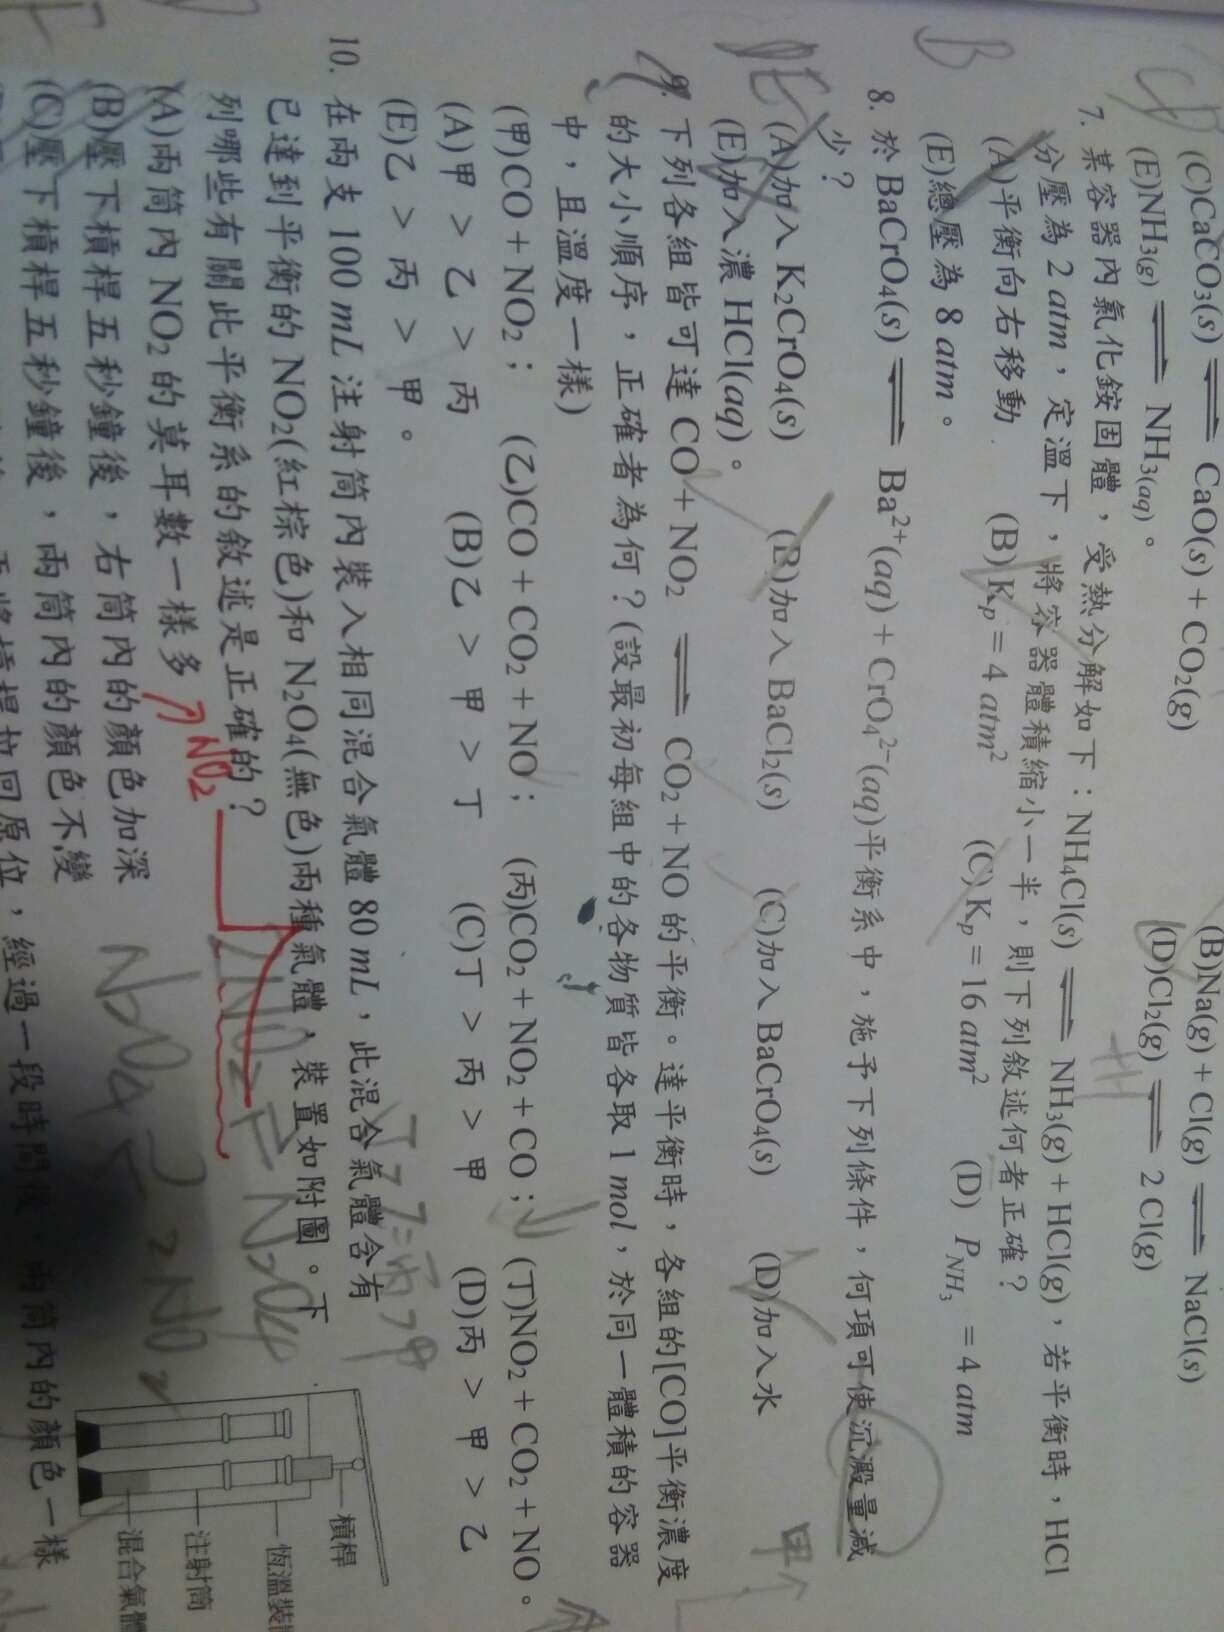 (B)Na(g) + Cl(g) ⇌ NaCl(s)
(C)CaCO3(s) ⇌ CaO(s) + CO2(g)
(D)Cl2(g) ⇌ 2 Cl(g)
(E)NH3(g) ⇌ NH3(aq)。
7. 某容器內氯化銨固體，受熱分解如下：NH4Cl(s) ⇌ NH3(g) + HCl(g)，若平衡時，HCl
分壓為 2 atm，定溫下，將容器體積縮小一半，則下列敘述何者正確？
(A)平衡向右移動 (B) Kp = 4 atm² (C) Kp = 16 atm² (D) PNH3 = 4 atm
(E)總壓為 8 atm。
B
8. 於 BaCrO4(s) ⇌ Ba²⁺(aq) + CrO4²⁻(aq)平衡系中，施予下列條件，何項可使沉澱量減
少？
(A)加入 K2CrO4(s) (B)加入 BaCl2(s) (C)加入 BaCrO4(s) (D)加入水
(E)加入濃 HCl(aq)。
9. 下列各組皆可達 CO + NO2 ⇌ CO2 + NO 的平衡。達平衡時，各組的[CO]平衡濃度
的大小順序，正確者為何？(設最初每組中的各物質皆各取 1 mol，於同一體積的容器
中，且溫度一樣)
(甲)CO + NO2； (乙)CO + CO2 + NO； (丙)CO2 + NO2 + CO； (丁)NO2 + CO2 + NO。
(A)甲 > 乙 > 丙 (B)乙 > 甲 > 丁 (C)丁 > 丙 > 甲 (D)丙 > 甲 > 乙
(E)乙 > 丙 > 甲。
10. 在兩支 100 mL 注射筒內裝入相同混合氣體 80 mL，此混合氣體含有
已達到平衡的 NO2(紅棕色)和 N2O4(無色)兩種氣體，裝置如附圖。下
列哪些有關此平衡系的敘述是正確的？
(A)兩筒內 NO2 的莫耳數一樣多
NO2
2NO2 ⇌ N2O4
(B)壓下槓桿五秒鐘後，右筒內的顏色加深
(C)壓下槓桿五秒鐘後，兩筒內的顏色不變
再將槓桿拉回原位，經過一段時間後，兩筒內的顏色一樣
槓桿
恆溫裝
注射筒
混合氣體